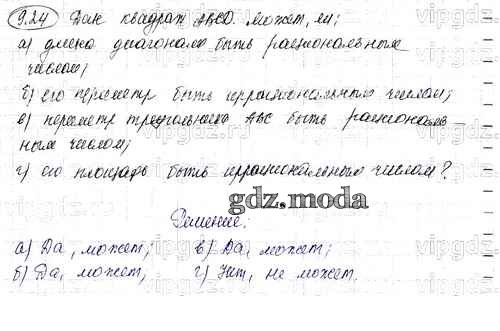 9.24 Дан квадрат ABCD. Может, ли;
а) длина диагонали быть рациональным
числом;
б) его периметр быть иррациональным числом;
в) периметр треугольника ABC быть рациональ-
ным числом;
г) его площадь быть иррациональным числом?
gdz.moda
Решение:
а) Да, может; в) Да, может;
б) Да, может, г) Нет, не может.